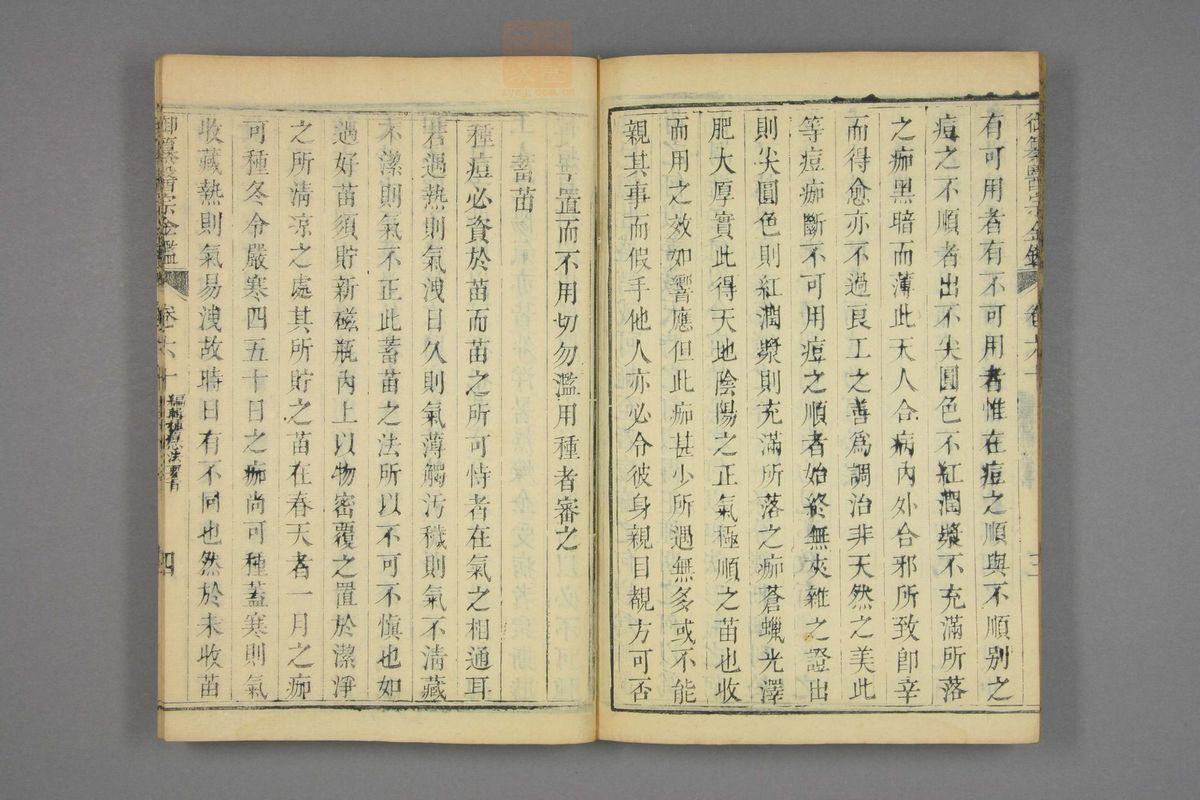 御纂醫宗金鑑 卷六十 三
有可用者有不可用者惟在痘之順與不順別之
痘之不順者出不尖圓色不紅潤漿不充滿所落
之痂黑暗而薄此天人合病內外合邪所致卽幸
而得愈亦不過良工之善爲調治非天然之美此
等痘痂斷不可用痘之順者始終無夾雜之證出
則尖圓色則紅潤漿則充滿所落之痂蒼蠟光澤
肥大厚實此得天地陰陽之正氣極順之苗也收
而用之效如響應但此痂甚少所遇無多或不能
親其事而假手他人亦必令彼身親目覩方可否
則寧置而不用切勿濫用種者審之
蓄苗
種痘必資於苗而苗之所可恃者在氣之相通耳
若遇熱則氣洩日久則氣薄觸污穢則氣不清藏
不潔則氣不正此蓄苗之法所以不可不慎也如
遇好苗須貯新磁瓶內上以物密覆之置於潔淨
之所清凉之處其所貯之苗在春天者一月之痂
可種冬令嚴寒四五十日之痂尚可種蓋寒則氣
收藏熱則氣易洩故時日有不同也然於未收苗
御纂醫宗金鑑 卷六十 編輯種痘心法要旨 四